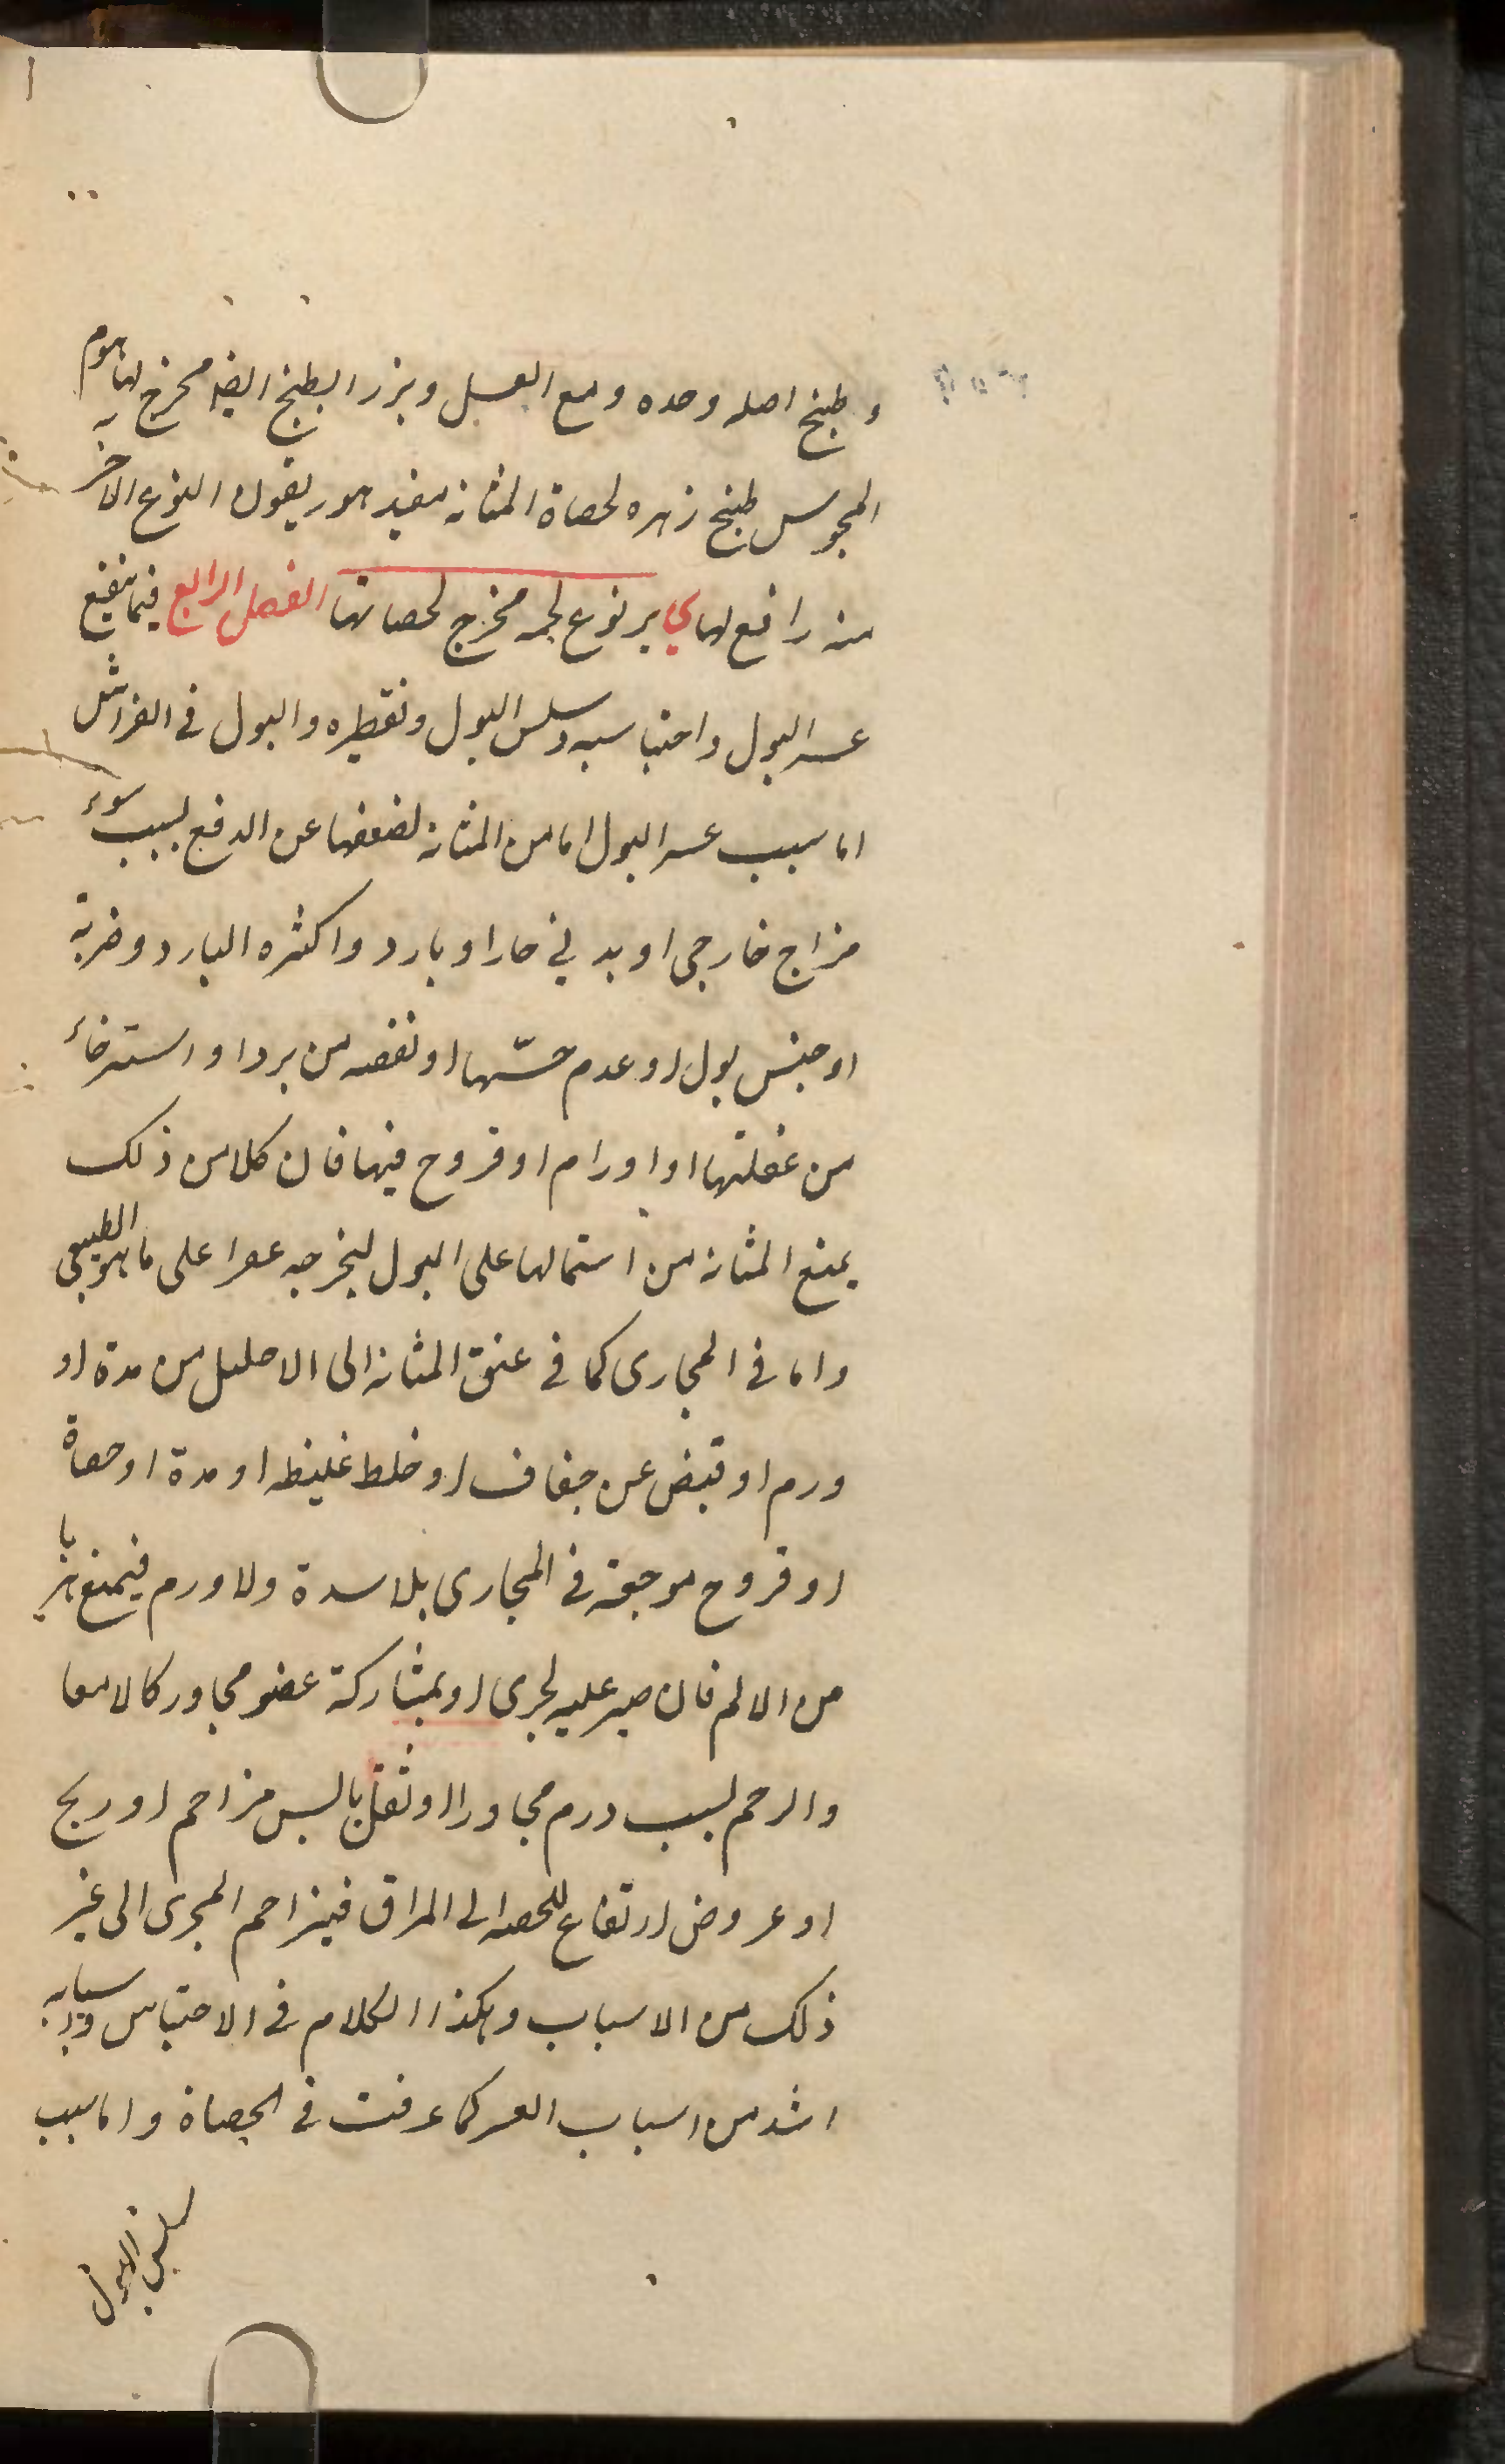 وطبخ اصله وحده ومع العسل وبزر البطيخ ايضا مخرج لها هوم
المجوس طبخ زهره لحصاة المثانة مفيد هور يقول النوع الاخر
منه رافع لها ي بر نوع لحمه مخرج لحصاتها الفصل الرابع فيما ينفع
عسر البول واحتباسه وسلس البول وتقطيره والبول في الفراش
اما سبب عسر البول اما من المثانة لضعفها عن الدفع بسبب سوء
مزاج خارجي او بدني حار او بارد واكثره البارد وضربة
او حبس بول او عدم حسّها او نقصه من برد او استرخاء
من عضلتها او اورام او قروح فيها فان كلا من ذلك
يمنع المثانة من اشتمالها على البول ليخرجه عصرا على ما هو الطبيعي
واما في المجارى كما في عنق المثانة الى الاحليل من سدة او
ورم او قبض عن جفاف او خلط غليظ او مدة او حصاة
او قروح موجعة في المجارى بلا سدة ولا ورم فيمنع
من الالم فان صبر عليه لجرى او بمشاركة عضو مجاور كالامعا
والرحم بسبب ورم مجاور او ثفل يابس مزاحم او ريح
او عروض ارتفاع للخصيه الى المراق فيزاحم المجرى الى غير
ذلك من الاسباب وهكذا الكلام في الاحتباس واسبابه
اشد من اسباب العسر كما عرفت في الحصاة واما سبب
سلس البول